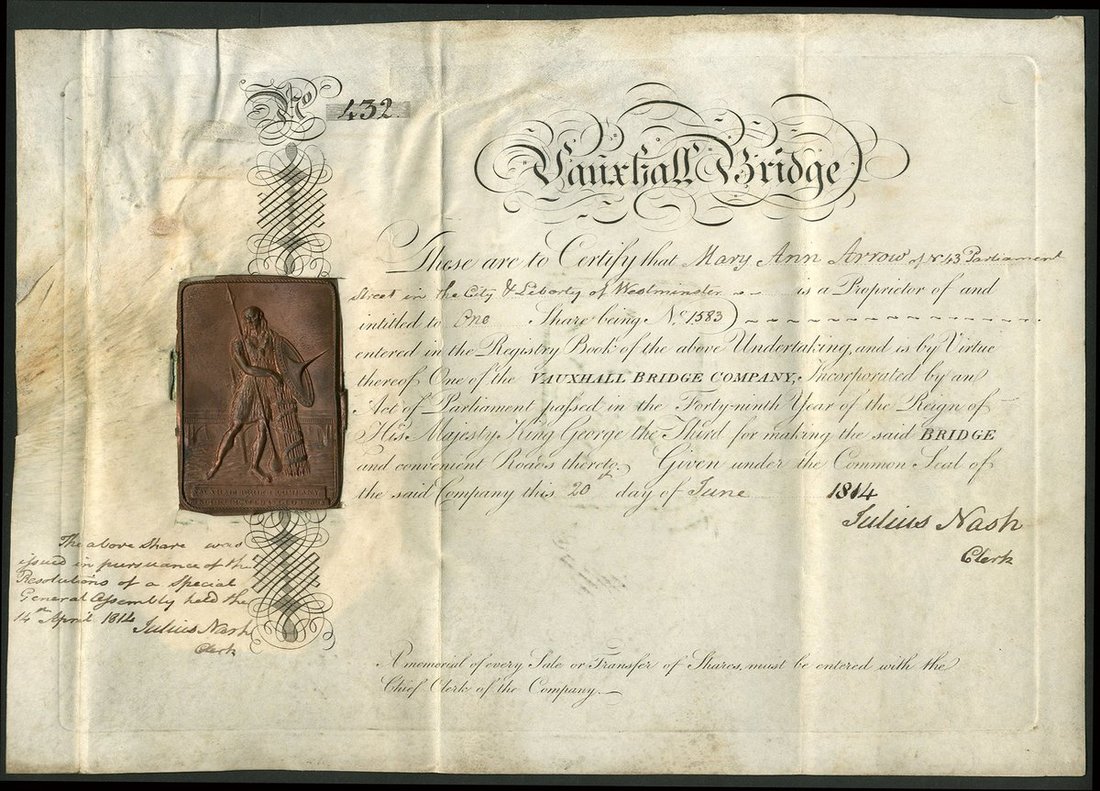 No 432
Vauxhall Bridge
These are to Certify that Mary Ann Arrow of No 43 Parliament
Street in the City & Liberty of Westminster is a Proprietor of and
intitled to One Share being No. 1583
entered in the Registry Book of the above Undertaking, and is by Virtue
thereof One of the VAUXHALL BRIDGE COMPANY, Incorporated by an
Act of Parliament passed in the Forty-ninth Year of the Reign of
His Majesty King George the Third for making the said BRIDGE
and convenient Roads thereto. Given under the Common Seal of
the said Company this 20th day of June 1814
Julius Nash
Clerk
VAUXHALL BRIDGE COMPANY
The above Share was
issued in pursuance of the
Resolutions of a Special
General Assembly held the
14th April 1814
Julius Nash
Clerk
A memorial of every Sale or Transfer of Shares, must be entered with the
Chief Clerk of the Company.